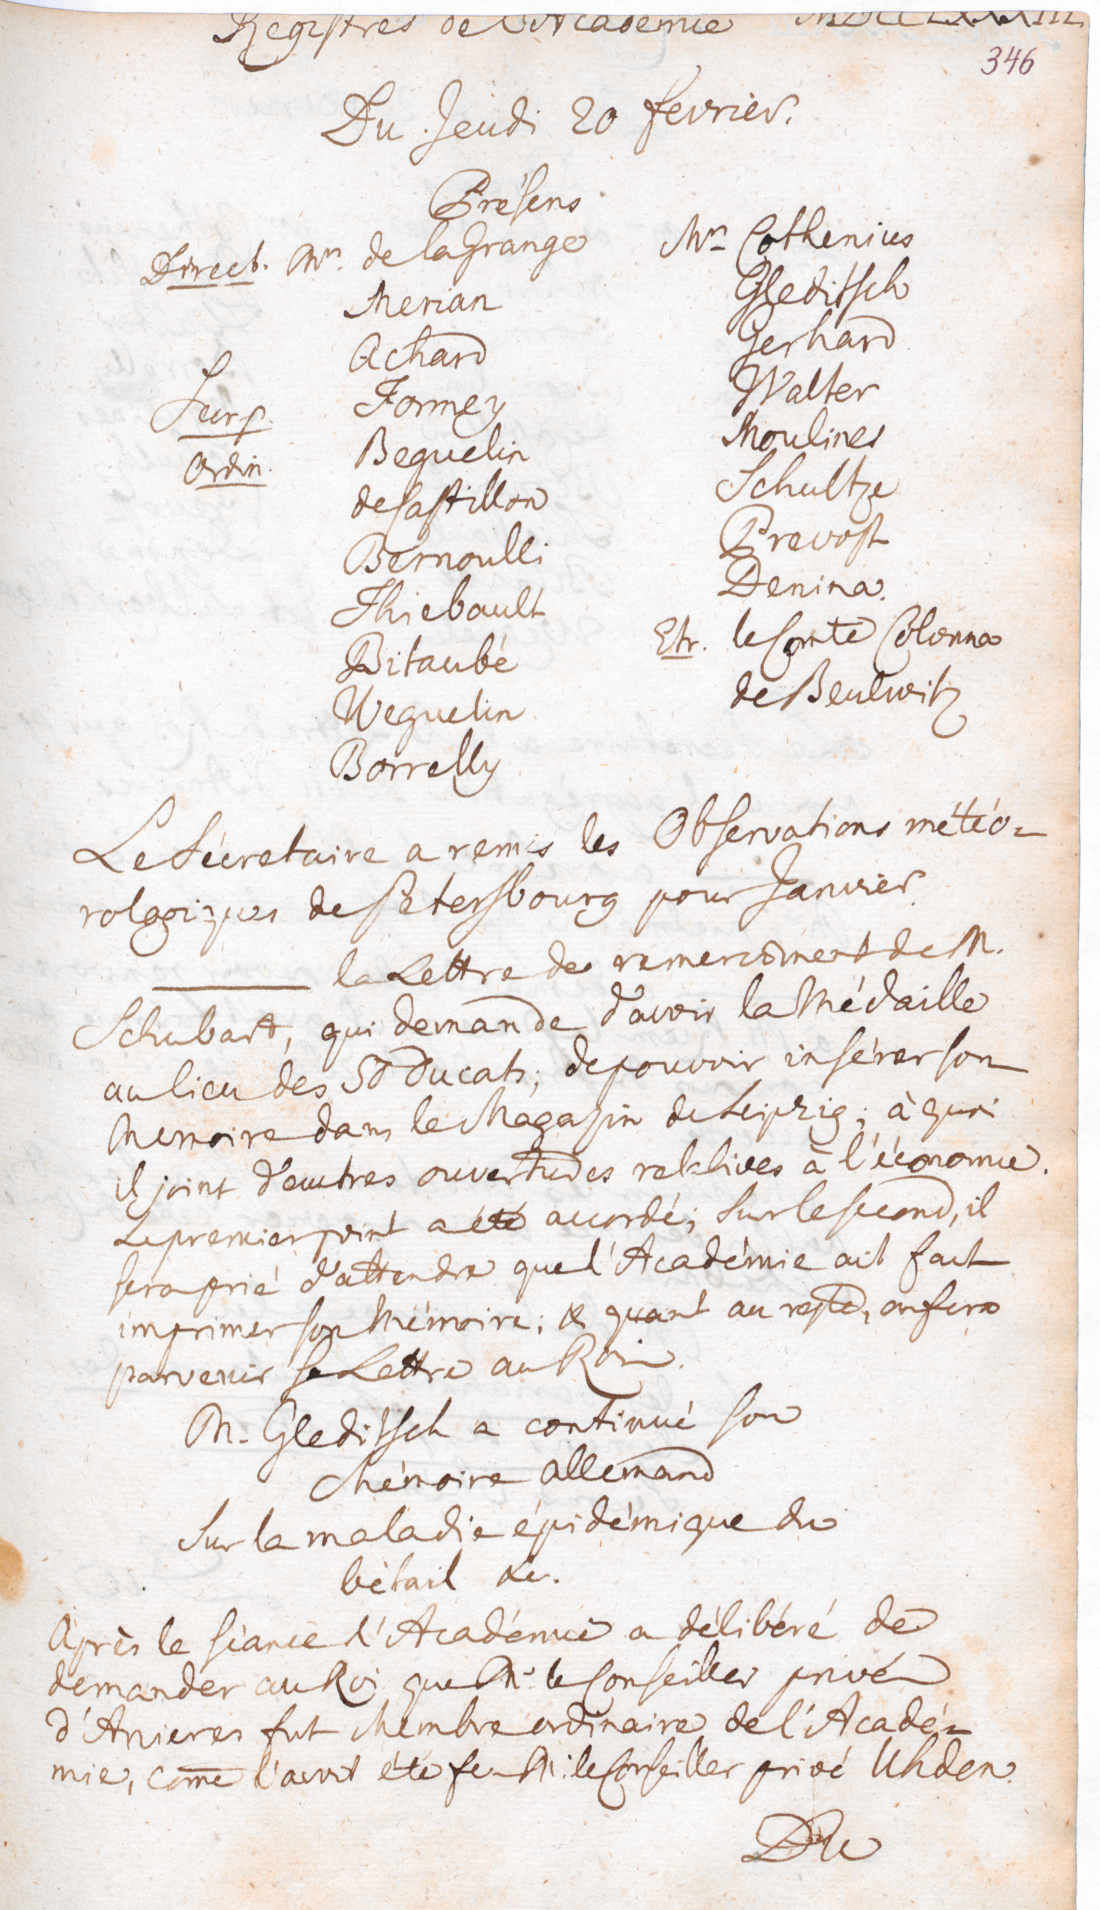 Registres de l'Academie MDCCLXXXIII.
346
Du Jeudi 20 fevrier.
Présens
Direct. Mrs. de la Grange
Merian
Achard
Formey
Ordin.
Beguelin
de Castillon
Bernoulli
Thiebault
Bitaubé
Weguelin
Borrelly
Mrs Cothenius
Gleditsch
Gerhard
Walter
Moulines
Schultze
Prevost
Denina.
Etr. le Comte Colonna
de Beulwitz
Le Sécretaire a remis les Observations météo-
rologiques de Petersbourg pour Janvier.
la Lettre de remerciment de M.
Schubart, qui demande d'avoir la Médaille
au lieu des 50 Ducats; de pouvoir insérer son
Memoire dans le Magazin de Leipzig; à quoi
il joint d'autres ouvertures relatives à l'économie.
Le premier point a été accordé; sur le second, il
sera prié d'attendre que l'Académie ait fait
imprimer son Mémoire; & quant au reste, on fera
parvenir sa Lettre au Roi.
M. Gleditsch a continué son
Mémoire allemand
Sur la maladie épidémique du
bétail &c.
Après la séance l'Académie a délibéré de
demander au Roi que Mr. le Conseiller privé
d'Anieres fut Membre ordinaire de l'Acadé-
mie, come l'avoit été feu M. le Conseiller privé Uhden.
Du